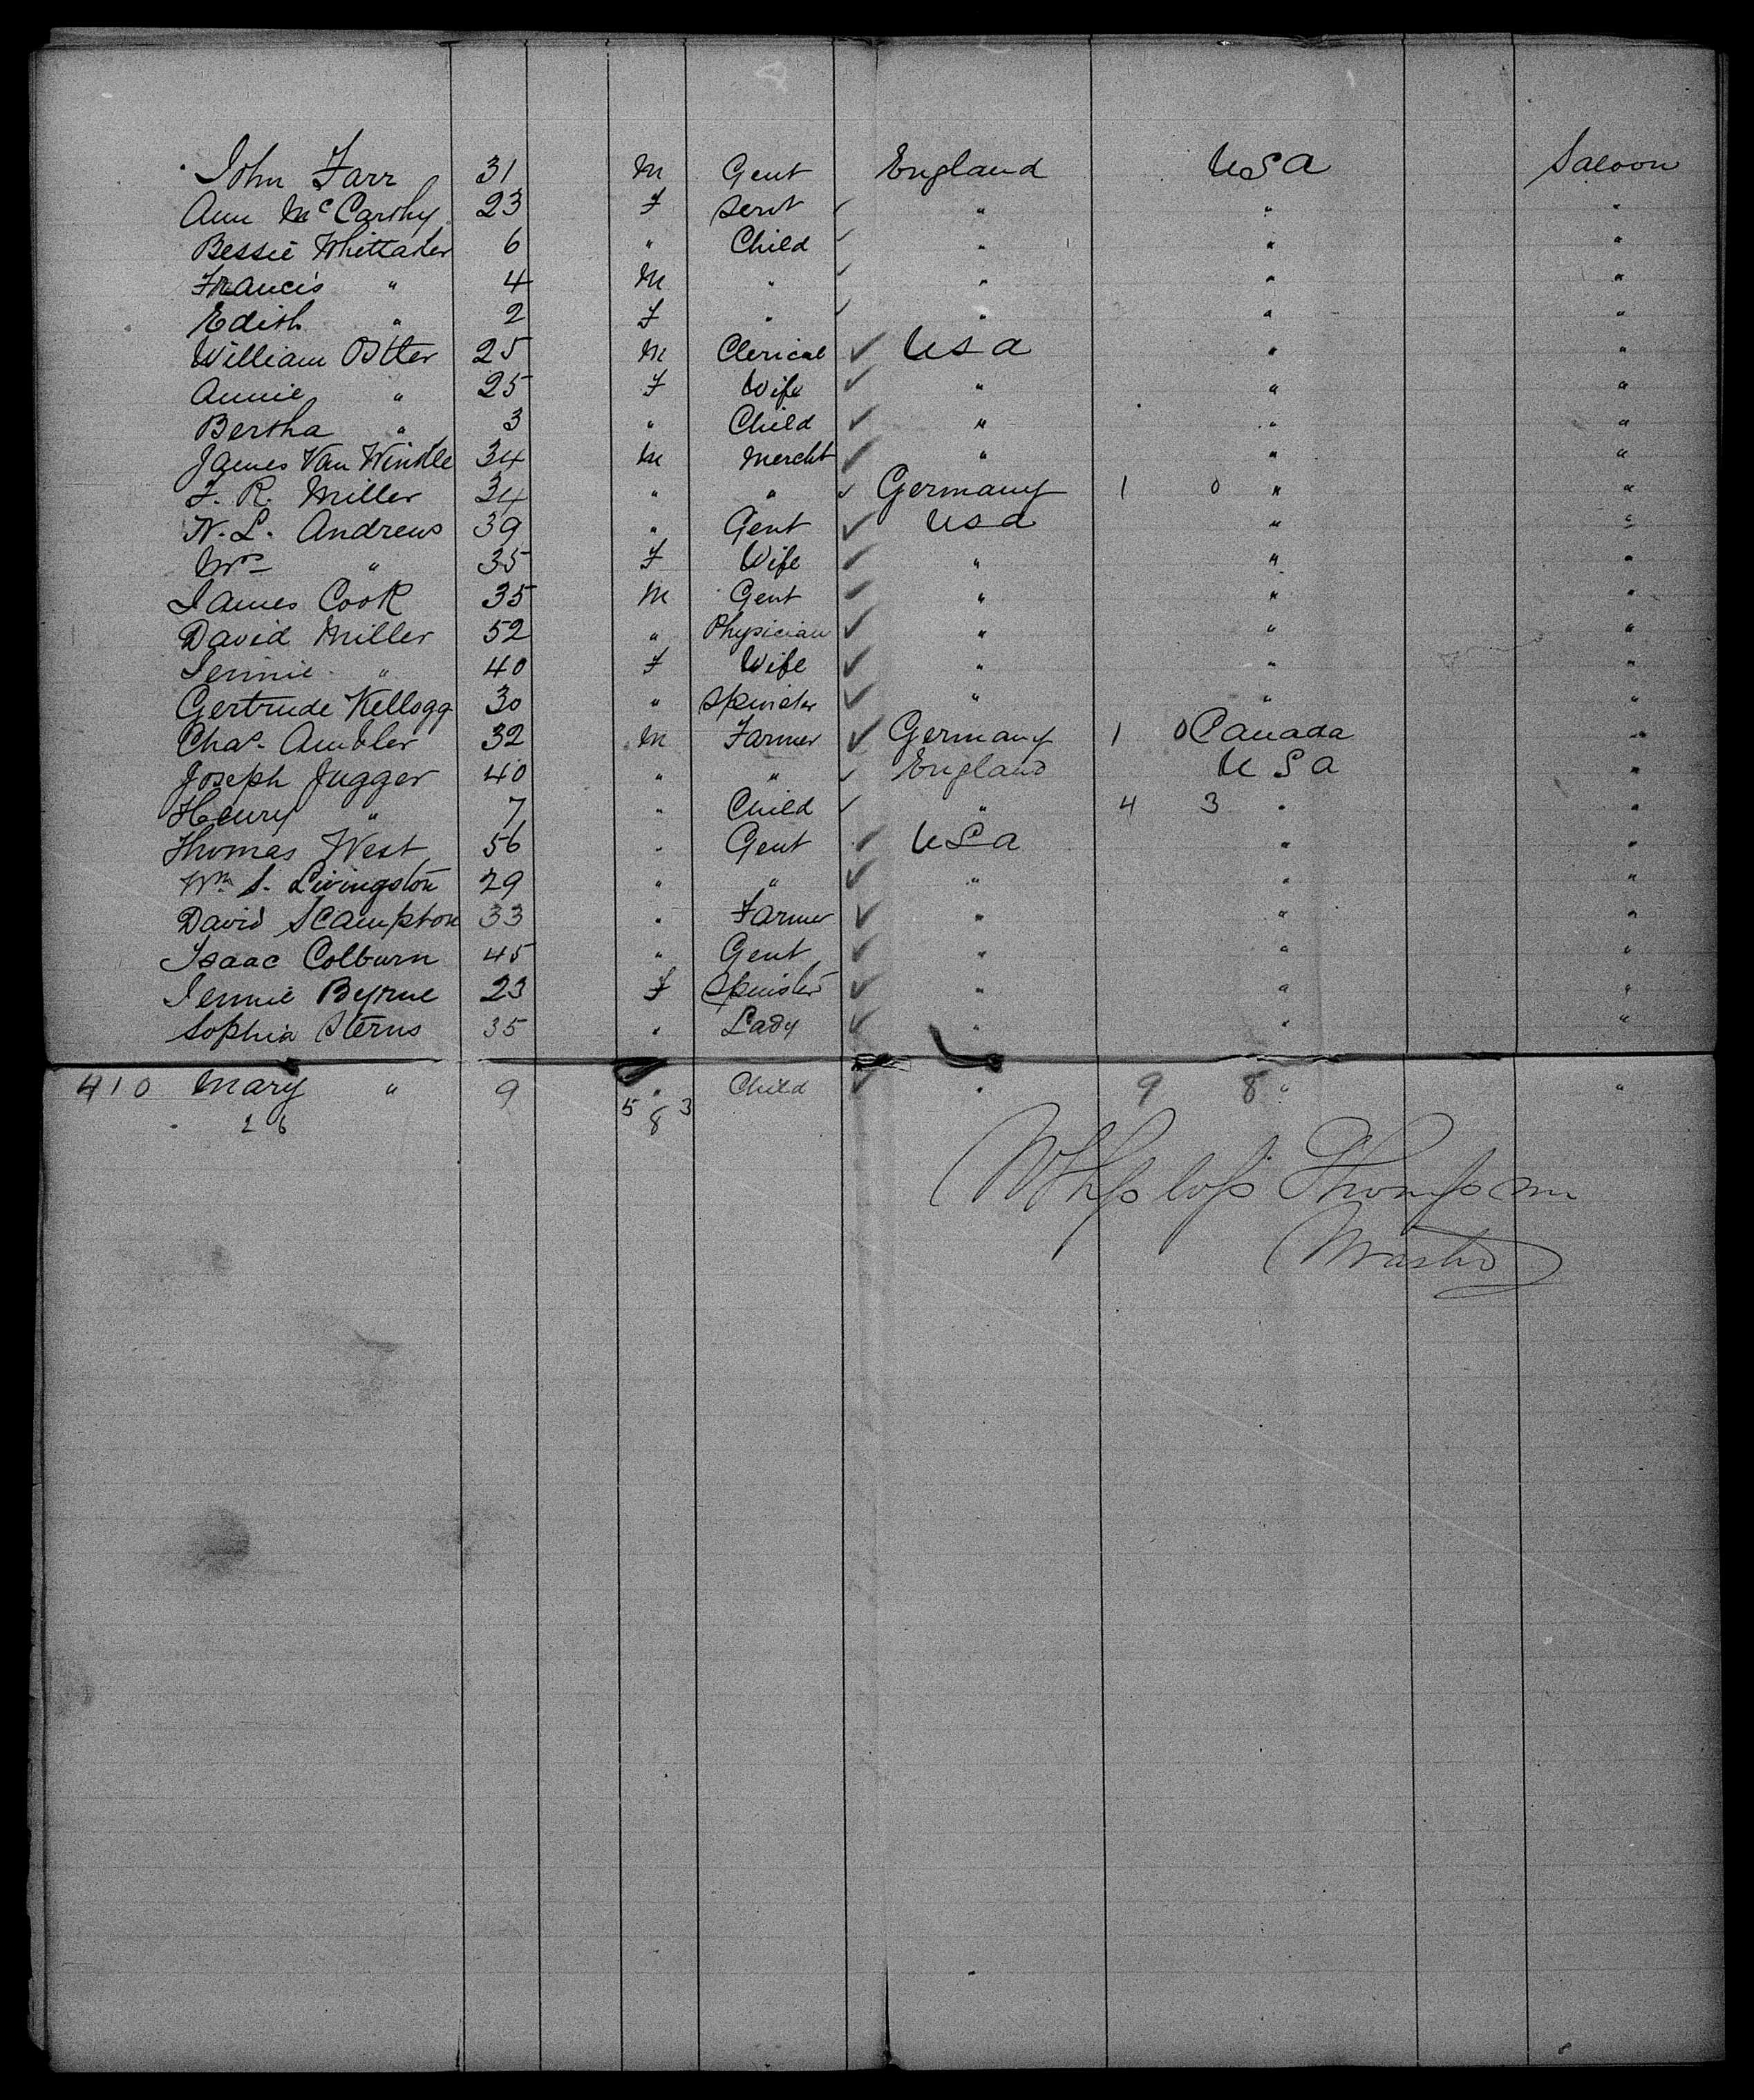 John Farr 31 M Gent England USA Saloon
Ann McCarthy 23 F Servt " " "
Bessie Whittaker 6 " Child " " "
Francis " 4 M " " " "
Edith " 2 F " " " "
William Ostler 25 M Clerical USA " "
Annie " 25 F Wife " " "
Bertha " 3 " Child " " "
James Van Winkle 34 M Mercht " " "
F. R. Miller 34 " " Germany 1 0 " "
N. L. Andrews 39 " Gent USA " "
Mrs " 35 F Wife " " "
James Cook 35 M Gent " " "
David Miller 52 " Physician " " "
Jennie " 40 F Wife " " "
Gertrude Kellogg 30 " Spinster " " "
Chas. Ambler 32 M Farmer Germany 1 0 Canada "
Joseph Jugger 40 " " England USA "
Henry " 7 " Child " 4 3 " "
Thomas West 56 " Gent USA " "
Wm S. Livingston 29 " " " " "
David Scampton 33 " Farmer " " "
Isaac Colburn 45 " Gent " " "
Jennie Byrne 23 F Spinster " " "
Sophia Sterns 35 " Lady " " "
410 Mary " 9 " Child " 9 8 " "
26 5 8 3
Thompson
Master